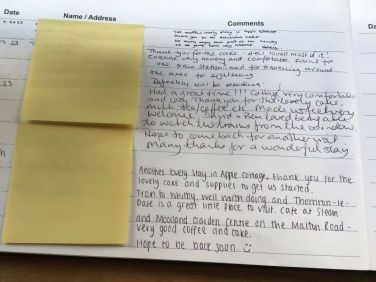 Date
Name / Address
Comments
Thank you for the cake - we loved most of it!
Cottage very homely and comfortable. Ideal for
the train station and for travelling around
the area for sightseeing
Definitely will be rebooking.
Had a great time!!! Cottage very comfortable
and cosy. Thankyou for the lovely cake,
milk, tea/coffee etc. Made us feel very
welcome. David + Ben loved being able
to watch the trains from the window.
Hope to come back for another visit
many thanks for a wonderful stay
Another lovely stay in Apple Cottage. Thank you for the
lovely cake and supplies to get us started.
Train to Whitby, well worth doing and Thornton-le-
Dale is a great little place to visit. Cafe at Steam
and Moorland Garden Centre on the Malton Road -
very good coffee and cake.
Hope to be back soon.